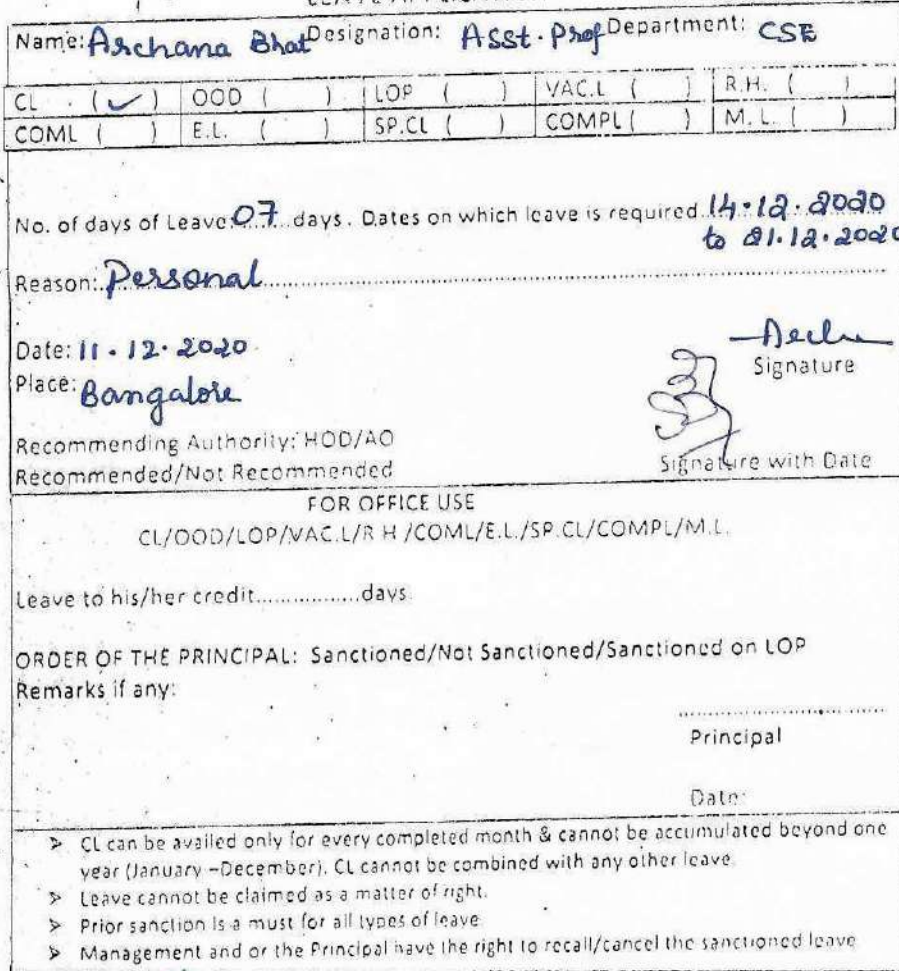 Name: Archana Bhat Designation: Asst. Prof Department: CSE
CL (✓) OOD ( ) LOP ( ) VAC.L ( ) R.H. ( )
COML ( ) E.L. ( ) SP.CL ( ) COMPL ( ) M.L. ( )
No. of days of Leave 07 days. Dates on which leave is required 14.12.2020
to 21.12.2020
Reason: Personal
Date: 11.12.2020
Signature
Place: Bangalore
Recommending Authority: HOD/AO
Recommended/Not Recommended
Signature with Date
FOR OFFICE USE
CL/OOD/LOP/VAC.L/R H /COML/E.L./SP.CL/COMPL/M.L.
Leave to his/her credit.................days
ORDER OF THE PRINCIPAL: Sanctioned/Not Sanctioned/Sanctioned on LOP
Remarks if any:
Principal
Date:
➢ CL can be availed only for every completed month & cannot be accumulated beyond one
year (January –December). CL cannot be combined with any other leave
➢ Leave cannot be claimed as a matter of right.
➢ Prior sanction is a must for all types of leave
➢ Management and or the Principal have the right to recall/cancel the sanctioned leave